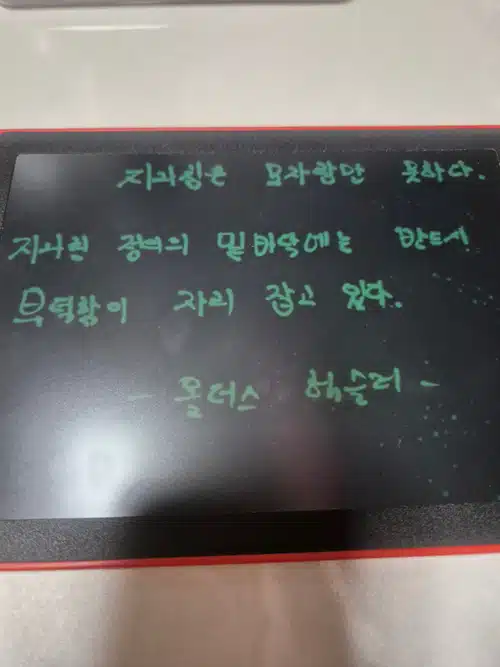 지나침은 모자람만 못하다.
지나친 밑바닥에는 반드시
무력함이 자리 잡고 있다.
- 올더스 헉슬리 -